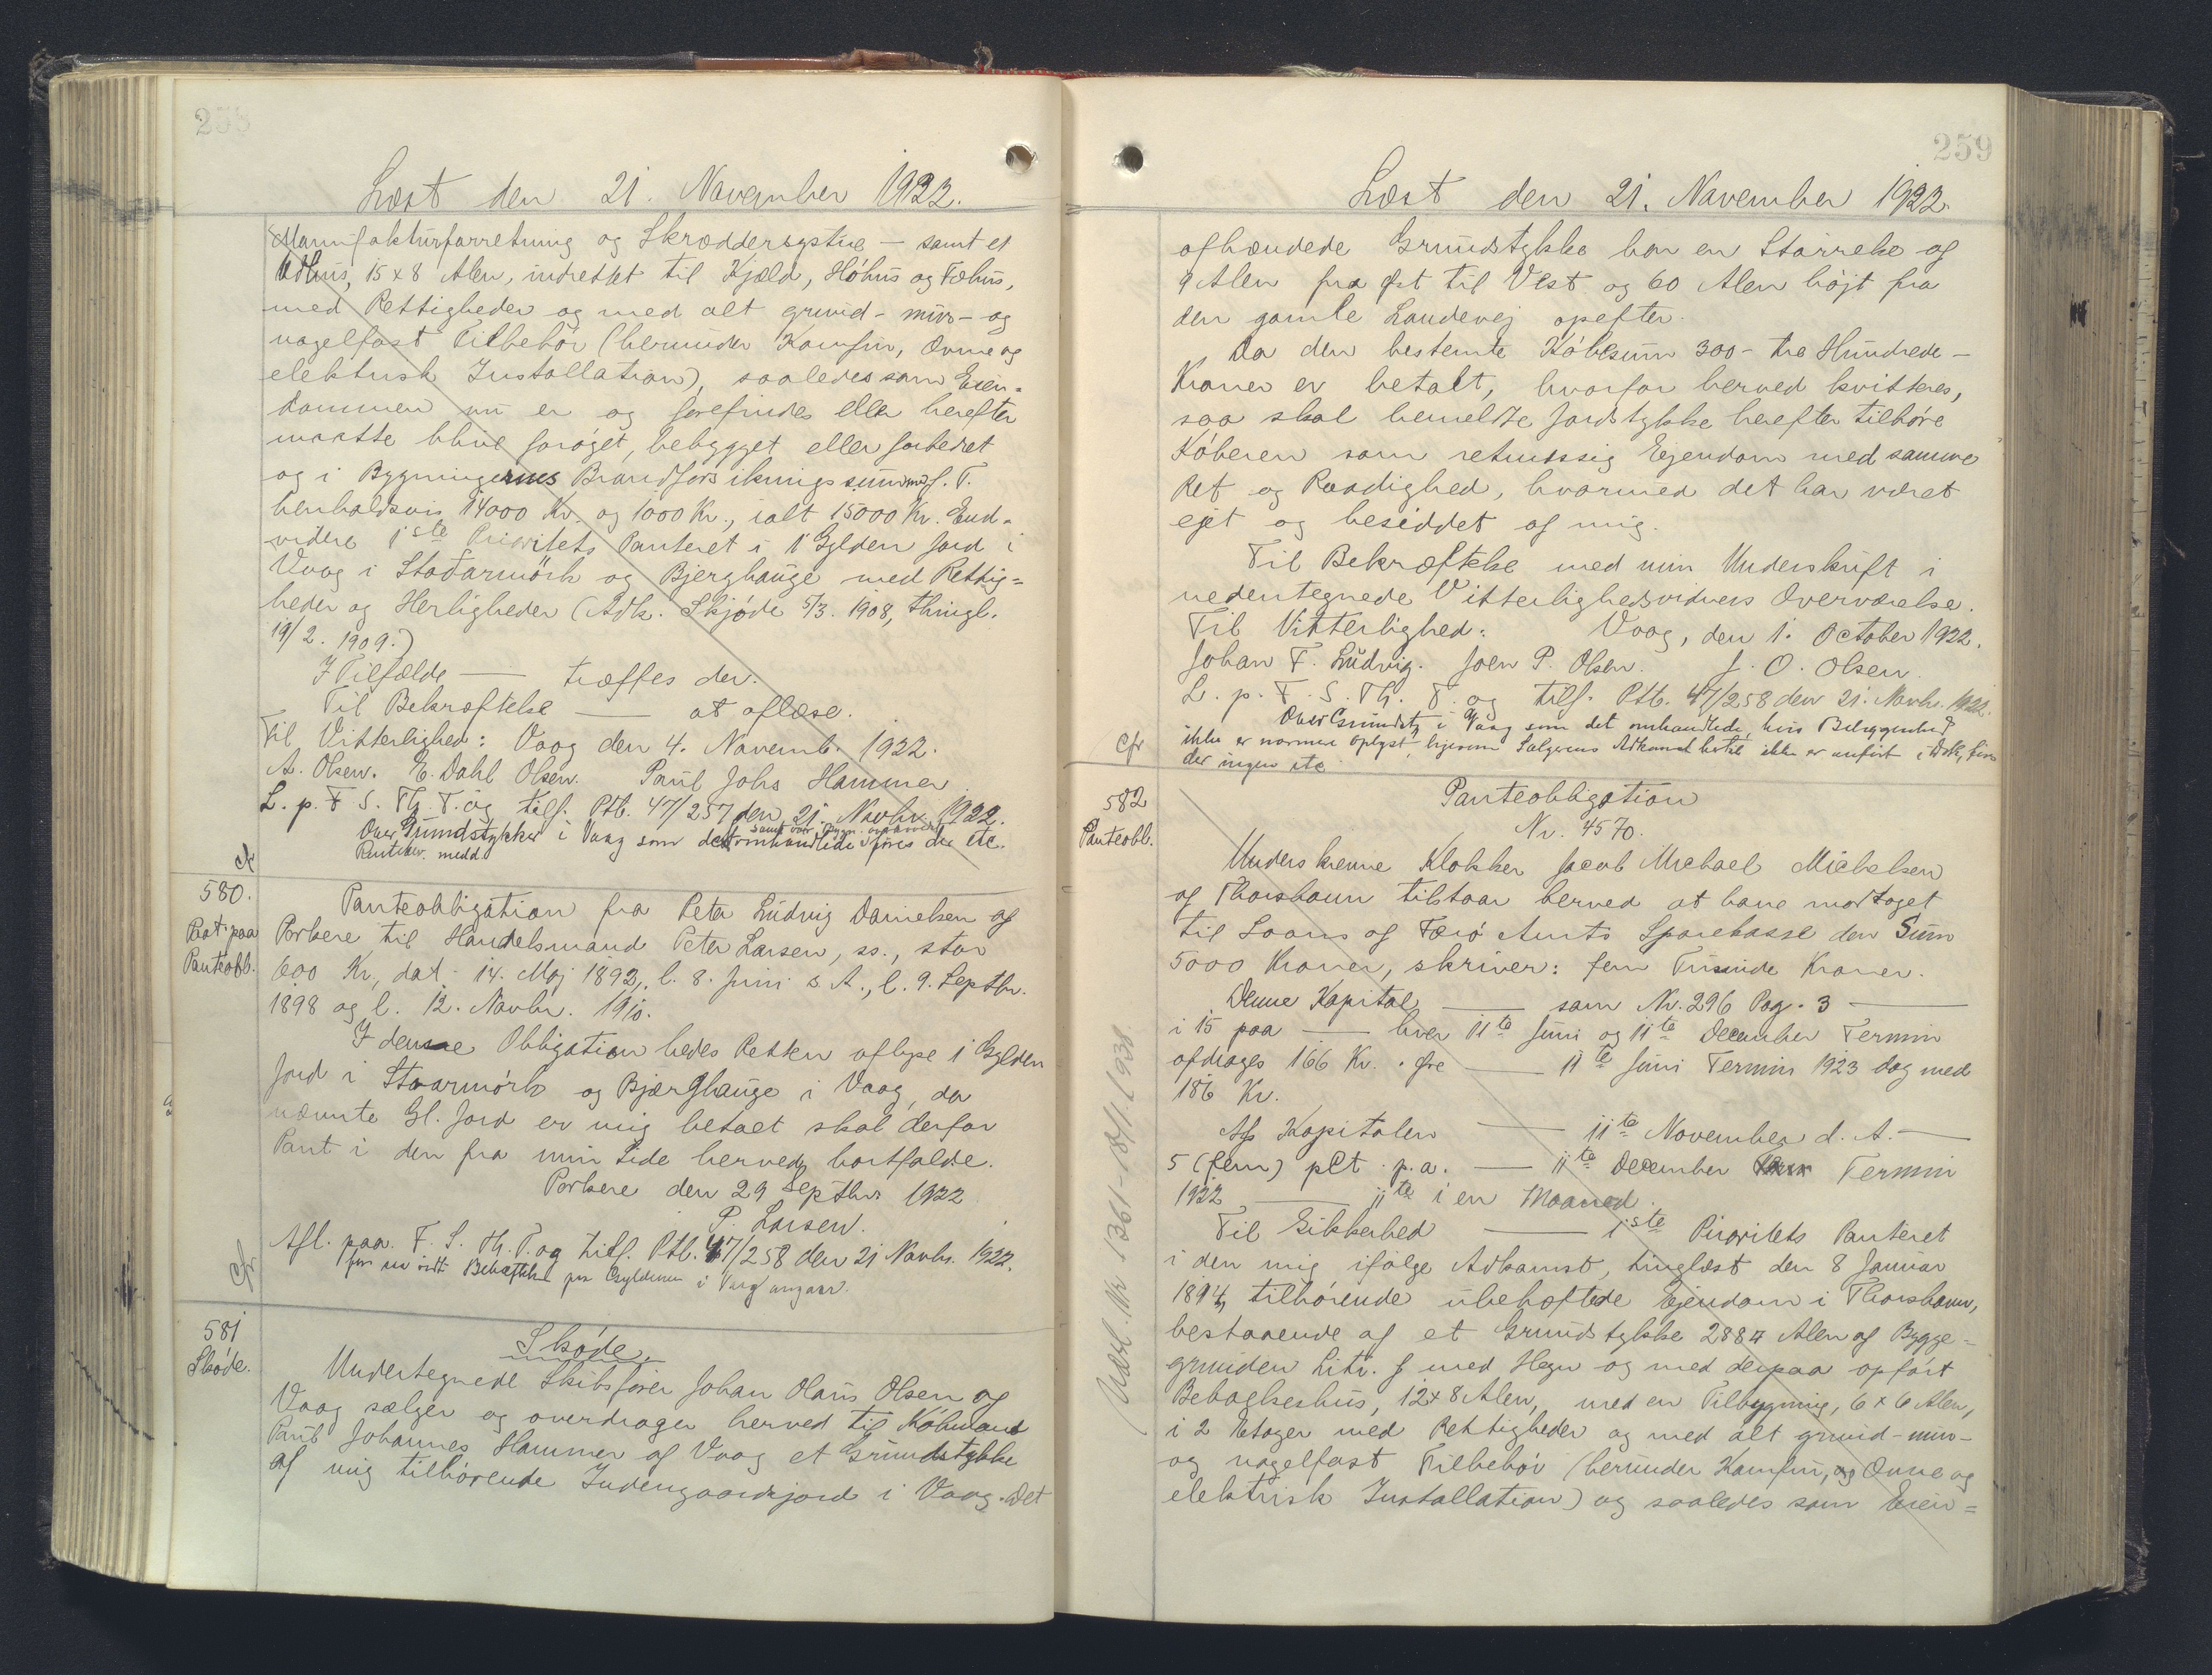 258
Læst den 21. November 1922.
Manufakturforretning og Skrædderystue – samt et
Udhus, 15 x 8 Alen, indrettet til Kjæld, Høhus og Fæhus,
med Rettigheder og med alt grund- mur- og
nagelfast Tilbehør (herunder Komfur, Ovne og
elektrisk Installation), saaledes som Eien=
dommen nu er og forefindes eller herefter
maatte blive forøget, bebygget eller forbedret
og i Bygningernes Brandforsikringssummer f. T.
henholdsvis 14000 Kr. og 1000 Kr., ialt 15000 Kr. End=
videre 1ste Prioritets Panteret i 1 Gylden Jord i
Vaag i Staðarmörk og Bjerghauge med Rettig=
heder og Herligheder (Adk. Skjøde 5/3. 1908, thingl.
19/2. 1909.)
I Tilfælde —— træffes der.
Til Bekræftelse —— at aflæse.
Til Vitterlighed: Vaag den 4. Novemb. 1922.
A. Olsen. E. Dahl Olsen. Paul Johs Hammer
L. p. F. S. Th. T. og tilf. Ptb. 47/257 den 21. Novbr. 1922.
Over Grundstykker i Vaag som det omhandlede føres der etc.
cfr
580.
Pant paa
Panteobl.
Panteobligation fra Peter Ludvig Danielsen af
Porkere til Handelsmand Peter Larsen, ss., stor
600 Kr., dat. 14. Maj 1892, l. 8. Juni s. A., l. 9. Septbr.
1898 og l. 12. Novbr. 1910.
I denne Obligation bedes Retten aflyse 1 Gylden
Jord i Staarmörk og Bjærghauge i Vaag, da
nævnte Gl. Jord er mig betalt skal derfor
Pant i den fra min Side herved bortfalde.
Porkere den 29 Septbr 1922
P. Larsen.
Afl. paa F. S. Th. T. og tilf. Ptb. 47/258 den 21 Novbr. 1922.
cfr
581
Skøde.
Skøde.
Undertegnede Skibsfører Johan Olaus Olsen af
Vaag sælger og overdrager herved til Købmand
Paul Johannes Hammer af Vaag et Grundstykke
af mig tilhørende Indengaardsjord i Vaag. Det
259
Læst den 21. November 1922.
afhændede Grundstykke har en Størrelse af
9 Alen fra Øst til Vest og 60 Alen højt fra
den gamle Landevej opefter.
Da den bestemte Købesum 300 – tre Hundrede –
Kroner er betalt, hvorfor herved kvitteres,
saa skal bemeldte Jordstykke herefter tilhøre
Køberen som retmæssig Ejendom med samme
Ret og Raadighed, hvormed det har været
ejet og besiddet af mig.
Til Bekræftelse med min Underskrift i
nedentegnede Vitterlighedsvidners Overværelse.
Til Vitterlighed: Vaag, den 1. October 1922.
Johan F. Ludvig. Joen P. Olsen. J. O. Olsen.
L. p. F. S. Th. T. og tilf. Ptb. 47/258 den 21. Novbr. 1922.
Over Grundst. i Vaag som det omhandlede, hvis Beliggenhed
ikke er nærmere oplyst, ligesom Sælgerens Adkomst hertil ikke er anført i Dok, fin
der ingen etc
cfr
582
Panteobl.
Panteobligation
Nr. 4570.
Underskrevne Klokker Jacob Michael Michelsen
af Thorshavn tilstaar herved at have modtaget
til Laans af Færø Amts Sparekasse den Sum
5000 Kroner, skriver: fem Tusinde Kroner.
Denne Kapital —— som Nr. 296 Pag. 3 ——
i 15 paa —— hver 11te Juni og 11te December Termin
afdrages 166 Kr. . Øre —— 11te Juni Termin 1923 dog med
186 Kr.
Af Kapitalen —— 11te November d. A. ——
5 (fem) pCt. p.a. —— 11te December Termin
1922 —— 11te i en Maaned.
Til Sikkerhed —— 1ste Prioritets Panteret
i den mig ifølge Adkomst, tinglæst den 8 Januar
1894, tilhørende ubehæftede Ejendom i Thorshavn,
bestaaende af et Grundstykke 2884 Alen af Bygge=
grunden Litr. J med Hegn og med derpaa opført
Beboelseshus, 12 x 8 Alen, med en Tilbygning, 6 x 6 Alen,
i 2 Etager med Rettigheder og med alt grund- mur-
og nagelfast Tilbehør (herunder Komfur, og Ovne og
elektrisk Installation) og saaledes som Eien=